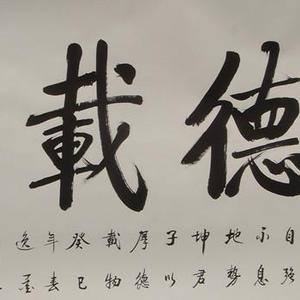 德載
自強
不息
地勢
坤君
子以
厚德
載物
癸巳
年春
逸墨